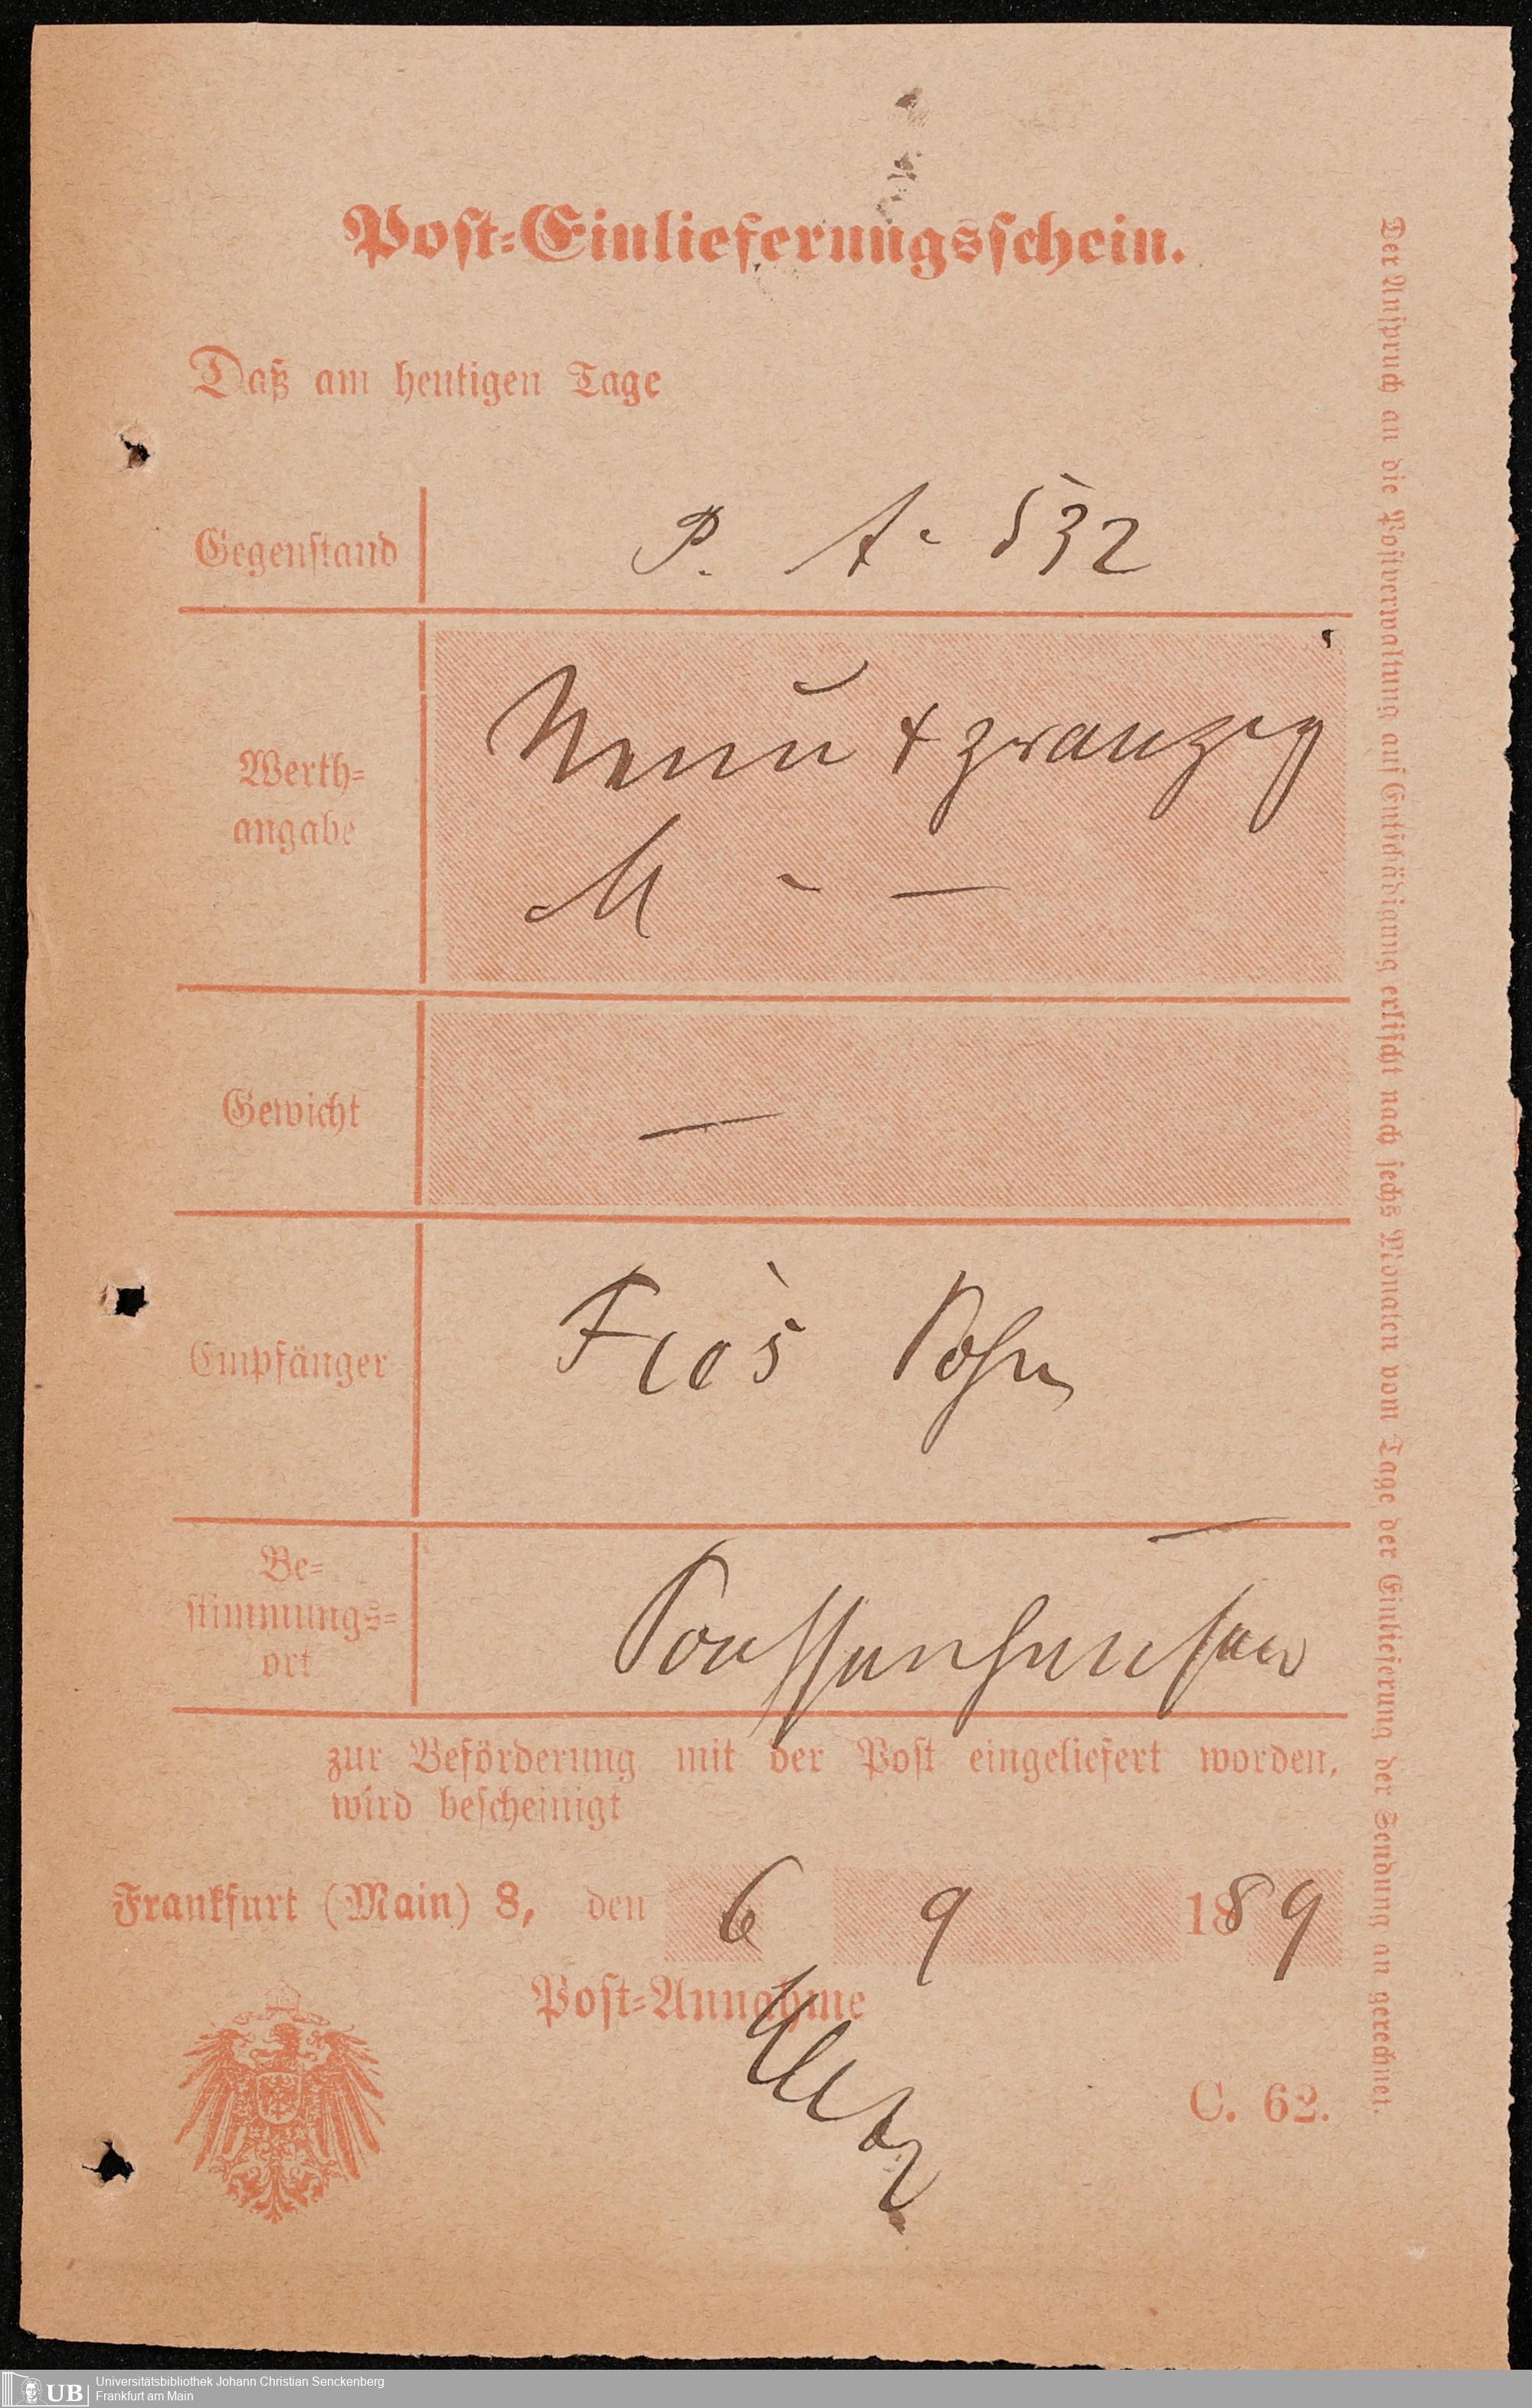 Post-Einlieferungsschein.
Daß am heutigen Tage
Gegenstand P. A. 532
Werth-
angabe
Neun + zwanzig
M - —
Gewicht —
Empfänger
Be-
stimmungs-
ort
zur Beförderung mit der Post eingeliefert worden,
wird bescheinigt
Frankfurt (Main) 8, den 6 9 1889
Post-Annahme
C. 62.
Der Anspruch an die Postverwaltung auf Entschädigung erlischt nach sechs Monaten vom Tage der Einlieferung der Sendung an gerechnet.
UB Universitätsbibliothek Johann Christian Senckenberg
Frankfurt am Main